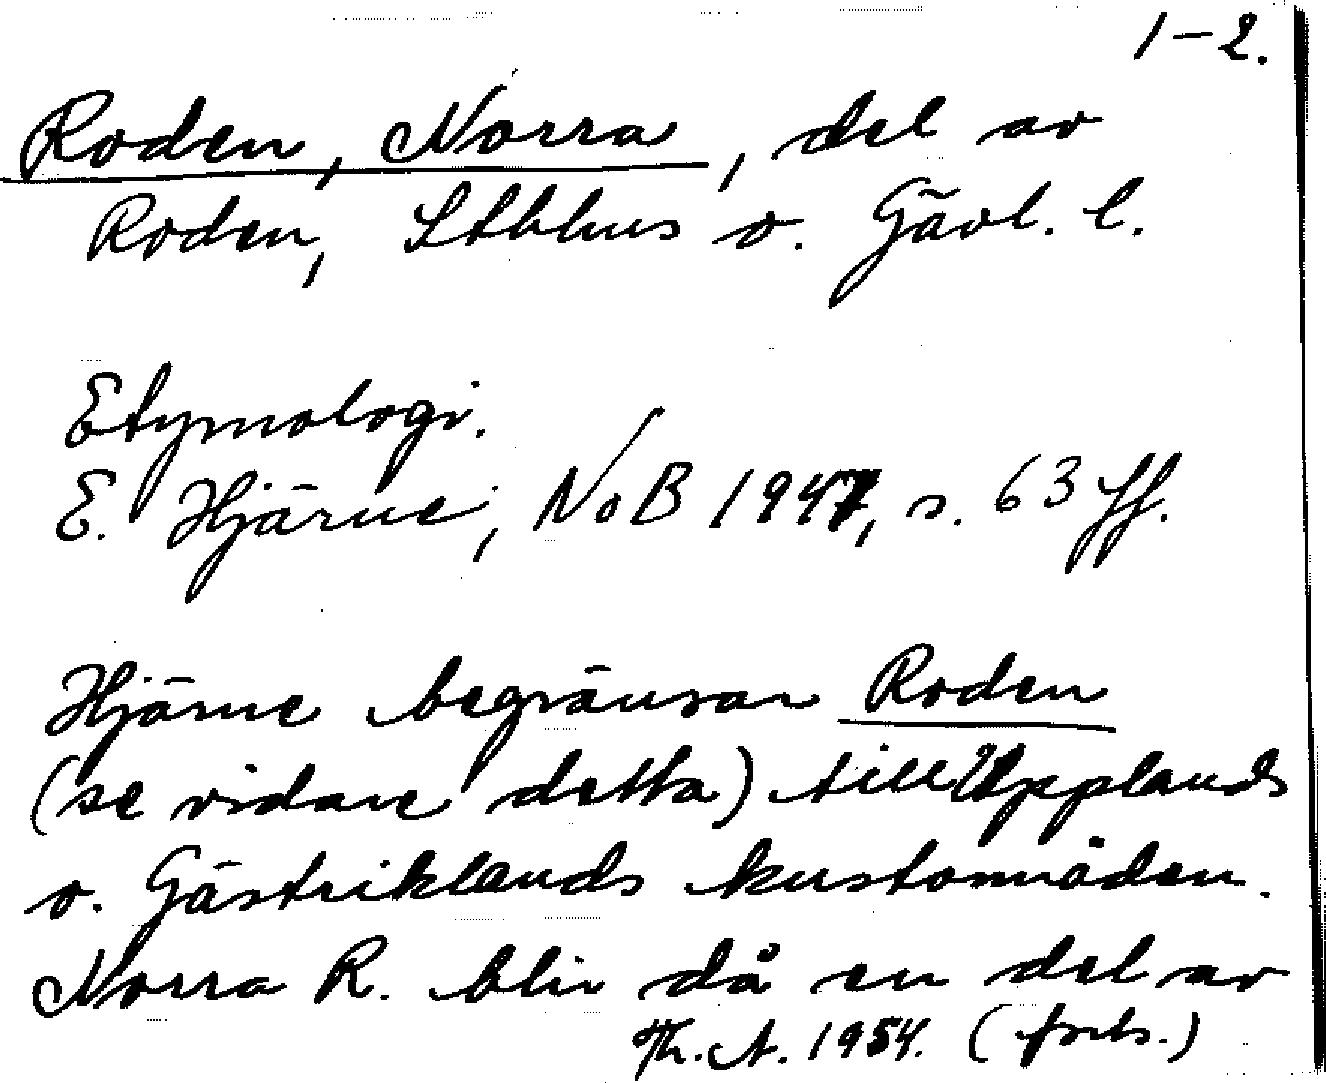 1-2.
Roden, Norra, del av
Roden, Stbhus o. Gävl. l.
Etymologi.
E. Hjärne, NoB 1947, s. 63 ff.
Hjärne begränsar Roden
(se vidare detta) till Upplands
o. Gästriklands kustområden.
Norra R. blir då en del av
Th. A. 1954. (forts.)